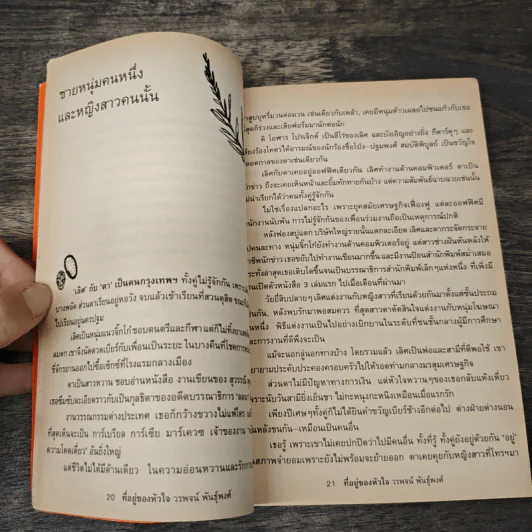 ชายหนุ่มคนหนึ่ง
และหญิงสาวคนนั้น
'เลิศ' กับ 'ดา' เป็นคนกรุงเทพฯ ทั้งคู่ไม่รู้จักกัน
บางพลัด ส่วนดาเรียนอยู่หอวัง จนแล้วเข้าเรียนที่สวนดุสิต
ไปเรียนอยู่นครปฐม
เลิศเป็นหนุ่มแนวจิ๊กโก๋ ชอบดนตรีและกีฬา แต่ก็ไม่ทิ้ง
สมตก เขาจึงนัดดวดเบียร์กับเพื่อนเป็นระยะ ในบางคืนที่โชค
ขี่จักรยานออกไปซื้อเซ็กซ์ที่โรงแรมกลางเมือง
ดาเป็นสาวหวาน ชอบอ่านหนังสือ งานเขียนของ สุวรรณี
เธอชื่นชมละเอียดราวกับเป็นกุลธิดาของอดีตบรรณาธิการ
งานวรรณกรรมต่างประเทศ เธอก็กว้างขวางไม่แพ้ใคร
ที่สุดเห็นจะเป็น การ์เบรียล การ์เซีย มาร์เควซ เจ้าของงาน
ความโดดเดี่ยว' อันยิ่งใหญ่
แต่ชีวิตไม่ได้มีด้านเดียว ในความอ่อนหวานและรักการ
20 ที่อยู่ของหัวใจ วรพจน์ พันธุ์พงศ์
สูบบุหรี่มวนต่อมวน เช่นเดียวกับเหล้า, เคยมีหนุ่มห้าวเผลอไปชนแก้วกับเธอ
สุดก็ร่วงและเสียฟอร์มมานักต่อนัก
ดิ โอฬาร โปรเจ็กต์ เป็นฮีโร่ของเลิศ และบังเอิญอย่างยิ่ง กีตาร์ดุๆ และ
ร้องโศคาใต้อารมณ์ของนักร้องชื่อโป่ง-ปฐมพงศ์ สมบัติพิบูลย์ เป็นขวัญใจ
ตลอดกาลของดาเช่นเดียวกัน
เลิศกับดาเคยอยู่ออฟฟิศเดียวกัน เลิศทำงานด้านคอมพิวเตอร์ ดาเป็น
ข่าว ถึงจะเคยเห็นหน้าและยิ้มทักทายกันบ้าง แต่ความสัมพันธ์ฉาบฉวยเช่นนั้น
น่าเรียกได้ว่าคนทั้งคู่รู้จักกัน
ไม่ใช่เรื่องแปลกอะไร เพราะยุคสมัยเศรษฐกิจเฟื่องฟู แต่ละออฟฟิศมี
นักงานนับพัน การไม่รู้จักกันของเพื่อนร่วมงานถือเป็นเหตุการณ์ปกติ
หลังฟองสบู่แตก บริษัทใหญ่รายนั้นแตกละเอียด เลิศและดากระจัดกระจาย
ปคนละทาง หนุ่มจิ๊กโก๋ยังทำงานด้านคอมพิวเตอร์อยู่ แต่สาวช่างฝันหันหลังให้
ชีพนักข่าว เธอขยับไปทำงานเขียนมากขึ้น และมีงานป้อนสำนักพิมพ์สม่ำเสมอ
ทั่งล่าสุดเธอเติบโตขึ้นจนเป็นบรรณาธิการสำนักพิมพ์เล็กๆแห่งหนึ่ง ที่เพิ่งมี
นเปิดตัวหนังสือ 3 เล่มแรก ไปเมื่อเดือนที่ผ่านมา
วัยยี่สิบปลายๆ เลิศแต่งงานกับหญิงสาวที่เรียนด้วยกันมาตั้งแต่ชั้นประถม
หลังพบรักมาพอสมควร ที่สุดสาวดาตัดสินใจแต่งงานกับหนุ่มโฆษณา
หนึ่ง พิธีแต่งงานเป็นไปอย่างเบิกบานในระดับที่ชนชั้นกลางผู้มีการศึกษา
และการงานที่ดีพึงจะเป็น
แม้จะนอกลู่นอกทางบ้าง โดยรวมแล้ว เลิศเป็นพ่อและสามีที่ดีพอใช้ เขา
ยายามประคับประคองครอบครัวไปให้รอดท่ามกลางมรสุมเศรษฐกิจ
ส่วนดาไม่มีปัญหาทางการเงิน แต่ให้หัวใจหวานๆของเธอกลับแห้งเหี่ยว
ราะนับวันสามียิ่งเย็นชา ไม่กะหนุงกะหนิงเหมือนเมื่อแรกรัก
เพียงปีเศษๆทั้งคู่ก็ไม่ได้ยินคำขวัญเบียร์ช้างอีกต่อไป ต่างฝ่ายต่างนอน
หลังชนกัน-เหมือนคนเป็นอื่น
เธอรู้ เพราะเขาไม่เคยปกปิดว่าไปมีคนอื่น ทั้งที่รู้ ทั้งคู่ยังอยู่ด้วยกัน 'อยู่'
สภาพจำยอมเพราะยังไม่พร้อมจะย้ายออก ดาเคยคุยกับหญิงสาวที่โทรฯมา
21 ที่อยู่ของหัวใจ วรพจน์ พันธุ์พงศ์